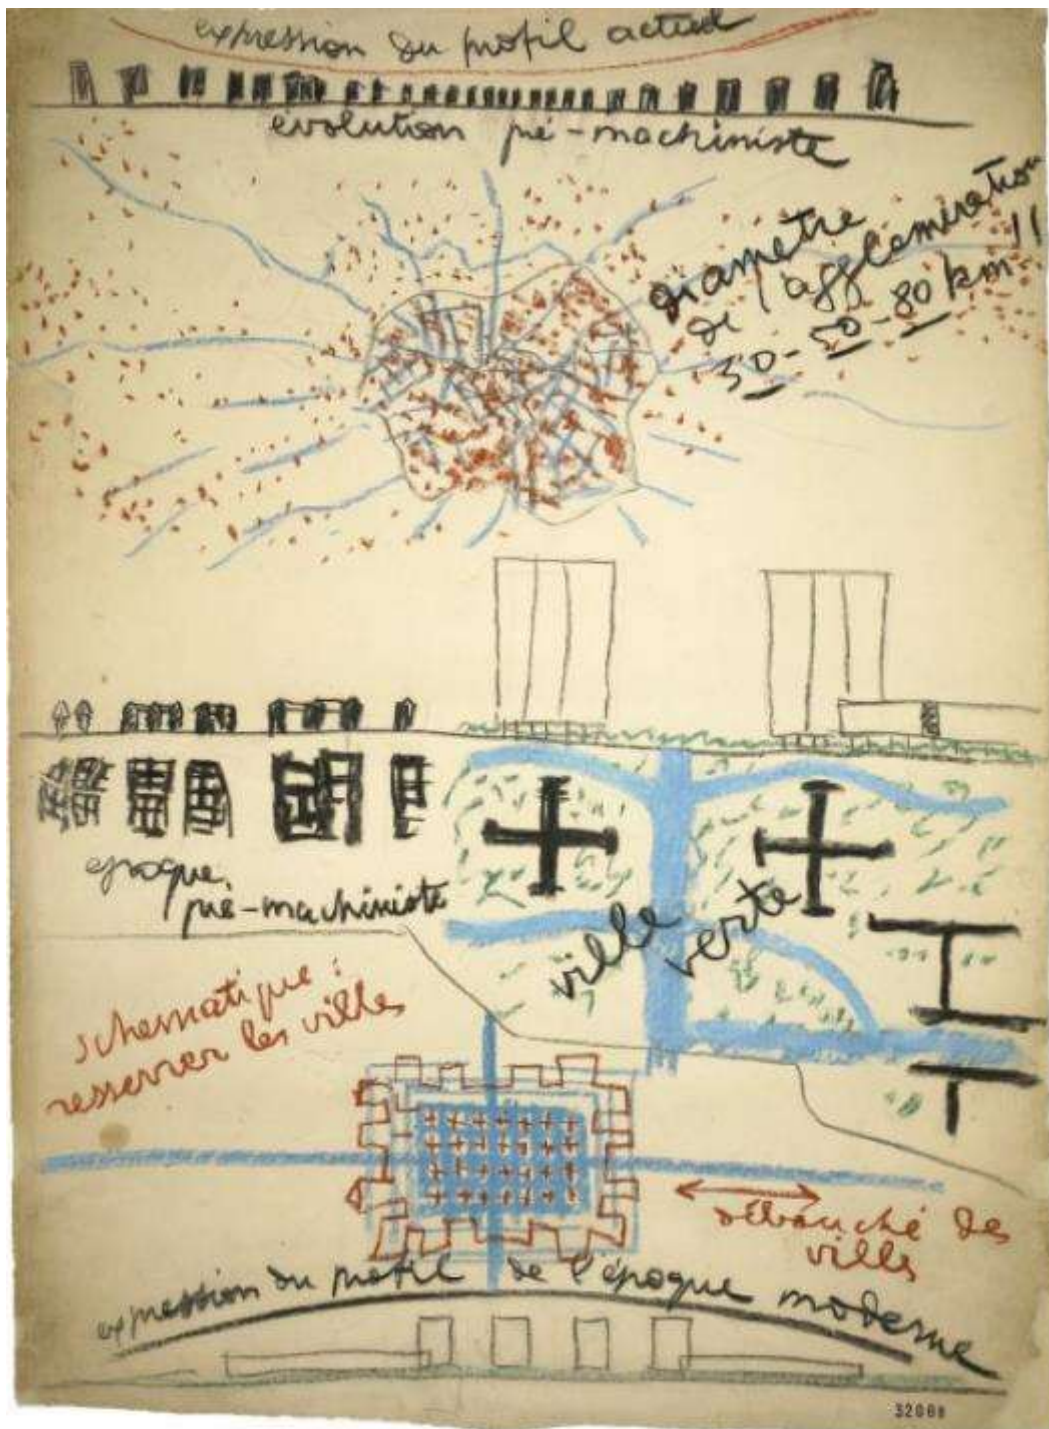 expression du profil actuel
évolution pré-machiniste
diamètre
de l'agglomération
30-50-80 km !!
époque
pré-machiniste
ville
verte
schématique :
resserrer les villes
débauché des
villes
expression du profil de l'époque moderne
32088